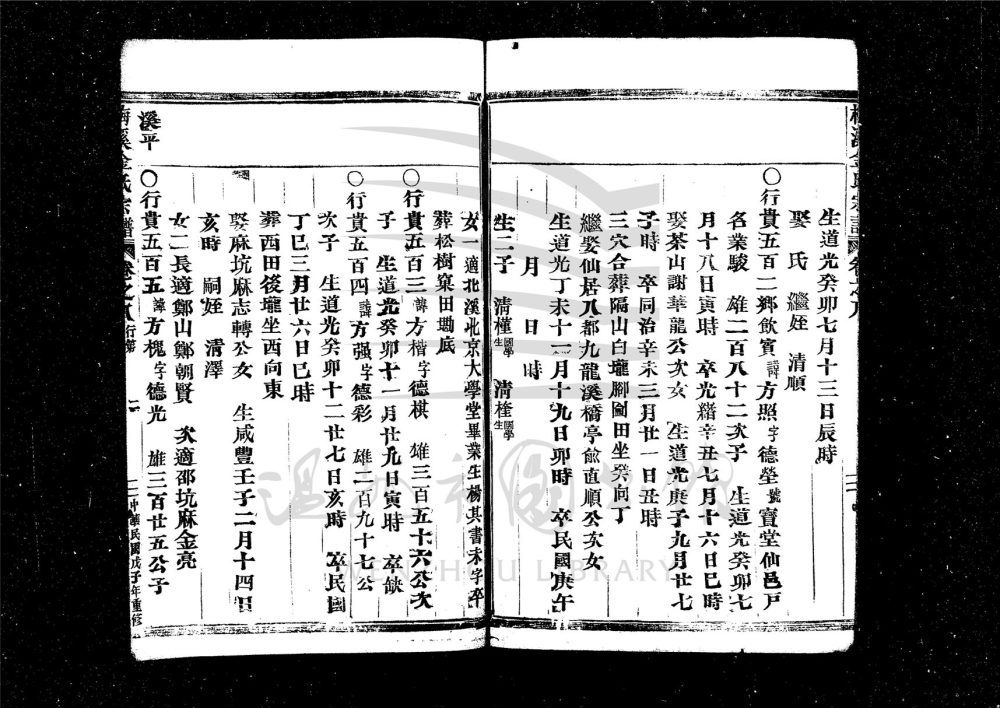 生道光癸卯七月十三日辰時
娶 氏 繼姪 清順
○行貴五百二鄉飲賓諱方照字德瑩號寶堂仙邑戶
名業駿 雄二百八十二次子 生道光癸卯七
月十八日寅時 卒光緒辛丑七月十六日巳時
娶茶山謝華龍公次女 生道光庚子九月廿七
子時 卒同治辛未三月廿一日丑時
三穴合葬隔山白壠腳圖田坐癸向丁
繼娶仙居八都九龍溪橋亭俞直順公次女
生道光丁未十一月十九日卯時 卒民國庚午
月 日 時
生二子 清槿國學生 清權國學生
女一適北溪北京大學堂畢業生楊其書未字卒
葬松樹窠田墈底
○行貴五百三諱方楷字德棋 雄三百五十六公次
子 生道光癸卯十一月廿九日寅時 卒缺
○行貴五百四諱方强字德彩 雄二百九十七公
次子 生道光癸卯十二廿七日亥時 卒民國
丁巳三月廿六日巳時
葬西田後壠坐西向東
娶麻坑麻志轉公女 生咸豐壬子二月十四日
亥時 嗣姪 清澤
女二長適鄭山鄭朝賢 次適邵坑麻金亮
○行貴五百五諱方槐字德光 雄三百廿五公子
溪平
金氏宗譜 卷之八 行第 二 中華民國戊子年重修
溫州市圖書館
WENZHOU LIBRARY